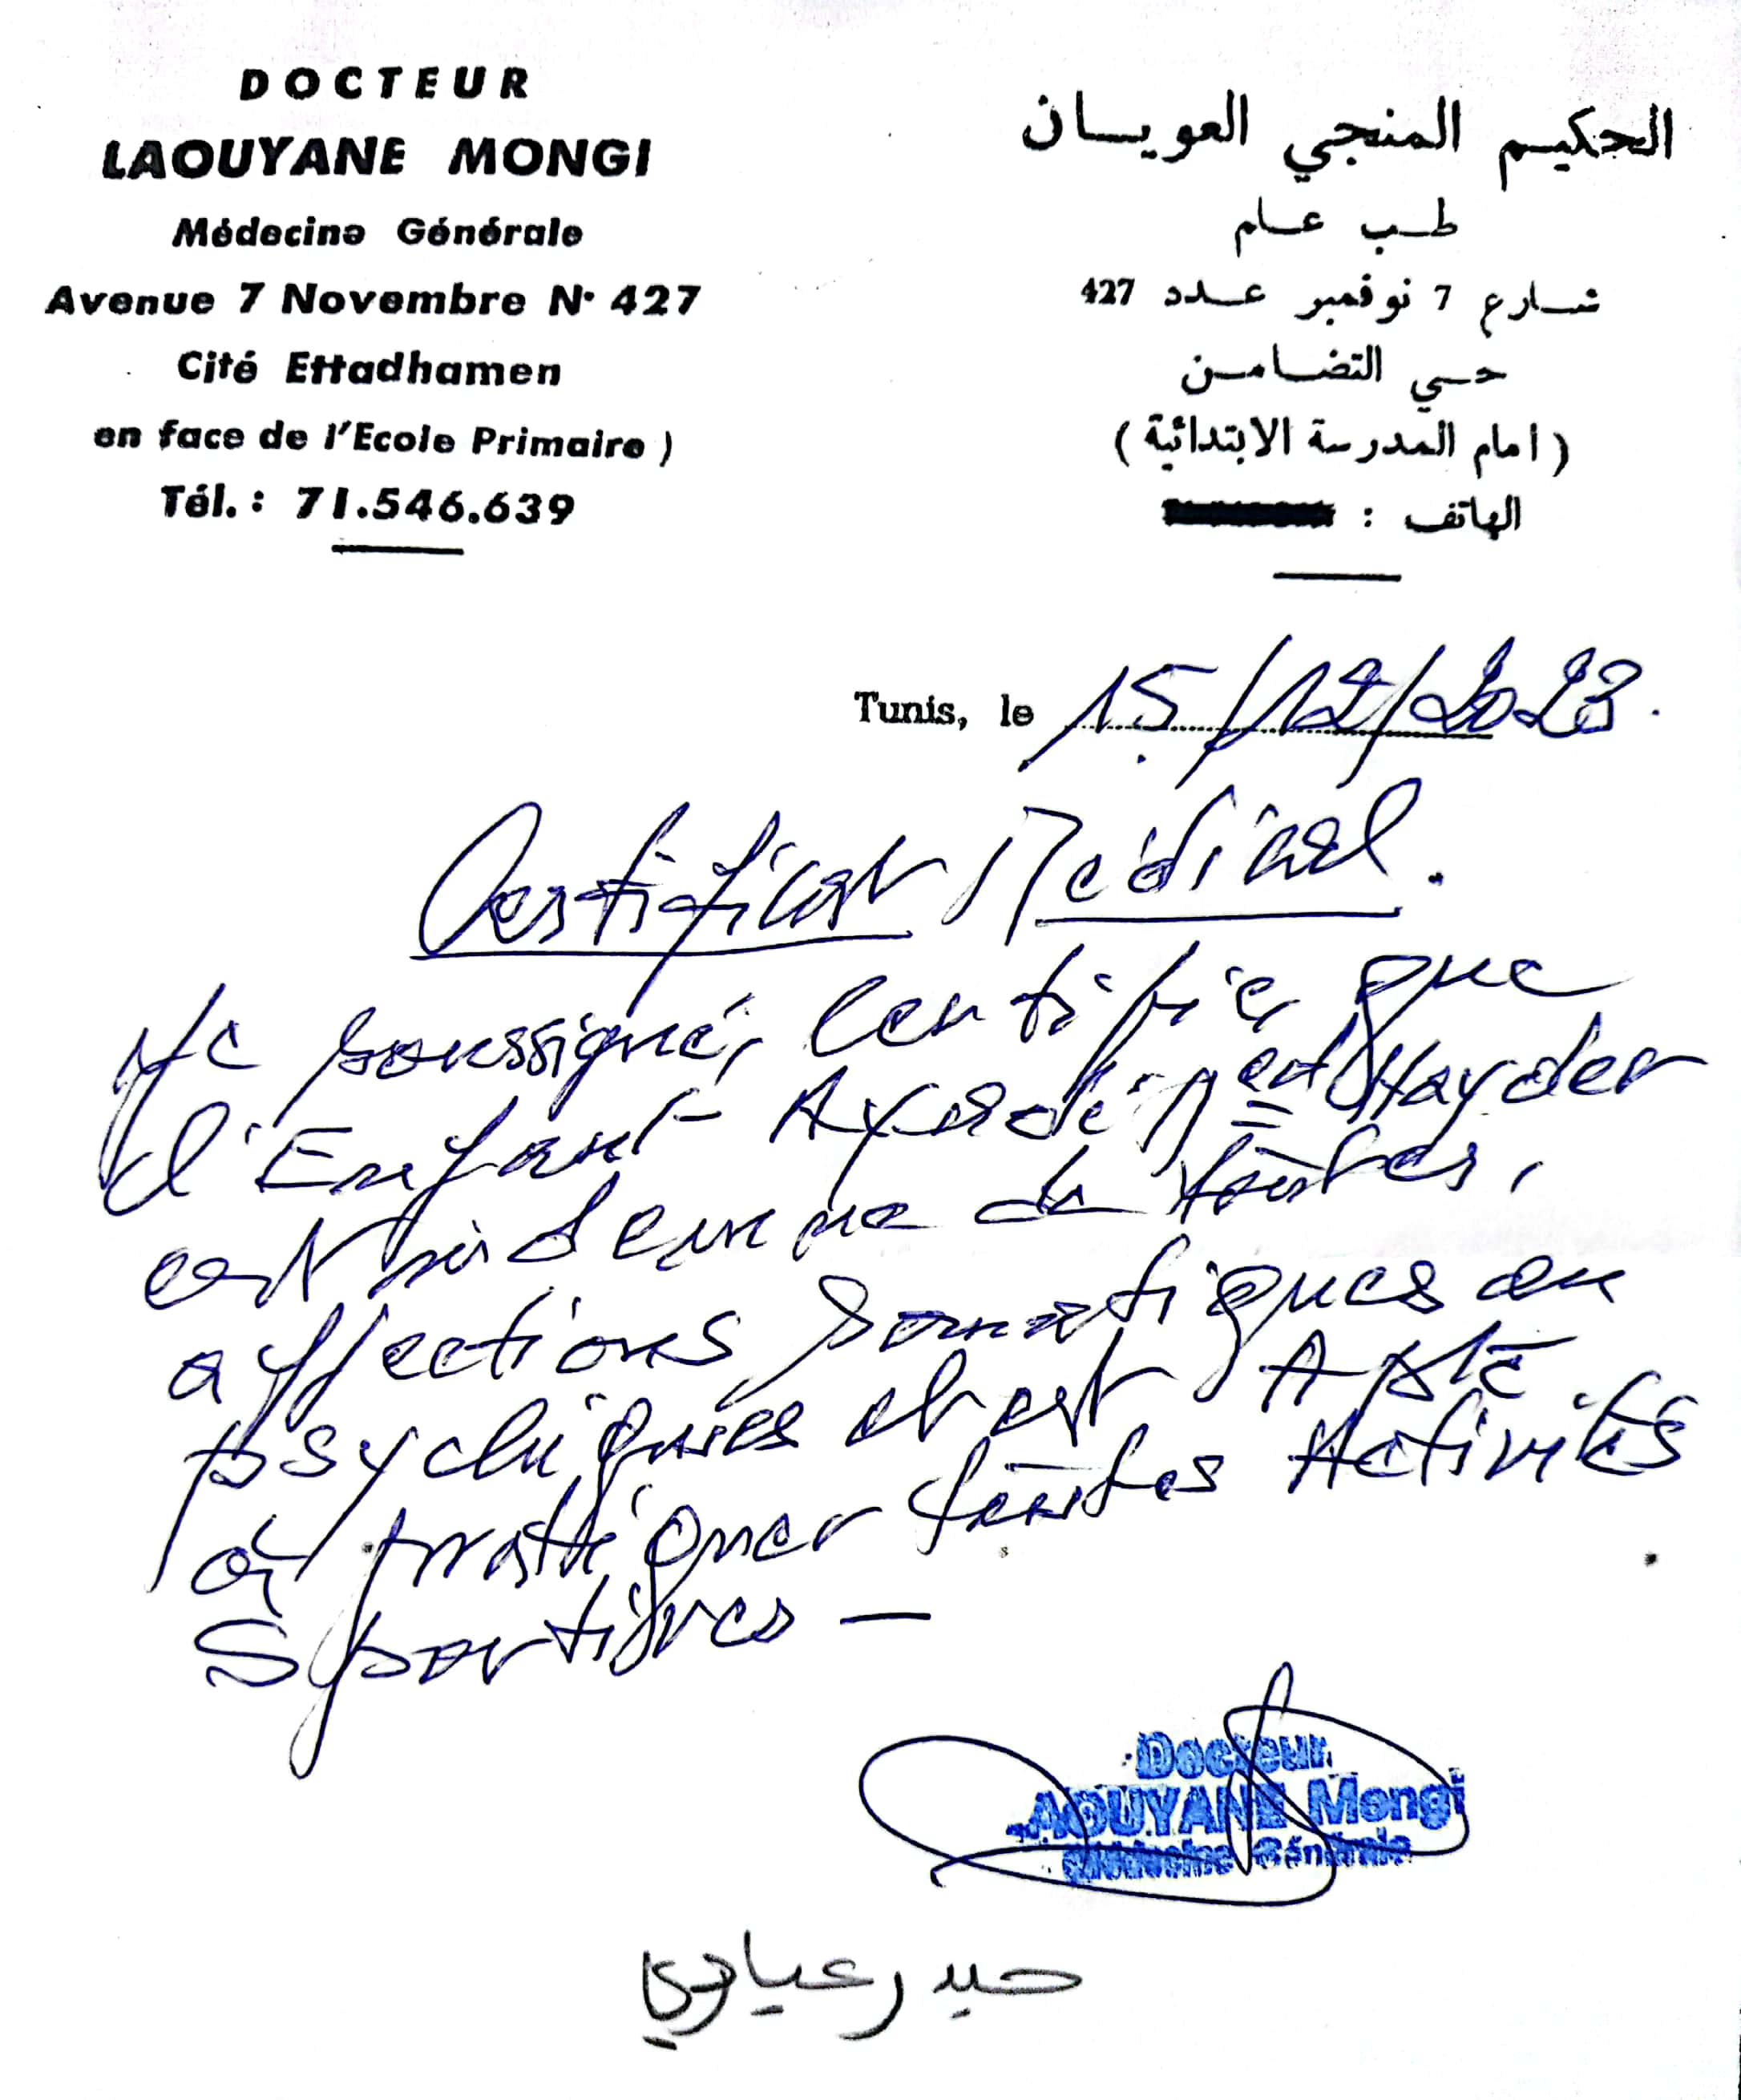 DOCTEUR
LAOUYANE MONGI
Médecine Générale
Avenue 7 Novembre N° 427
Cité Ettadhamen
en face de l'Ecole Primaire )
Tél. : 71.546.639
الحكيم المنجي العويسان
طب عام
شارع 7 نوفمبر عدد 427
حي التضامن
( امام المدرسة الابتدائية )
الهاتف :
Tunis, le 15/12/2023.
Certificat Médical.
Je soussigné, certifie que
l'Enfant Ayadi Hayder
est indemne de toutes,
affections somatiques ou
psychiques et est Apte
à pratiquer toutes Activités
Sportives —
Docteur
AOUYANE Mongi
Médecine Générale
حيدر عيادي